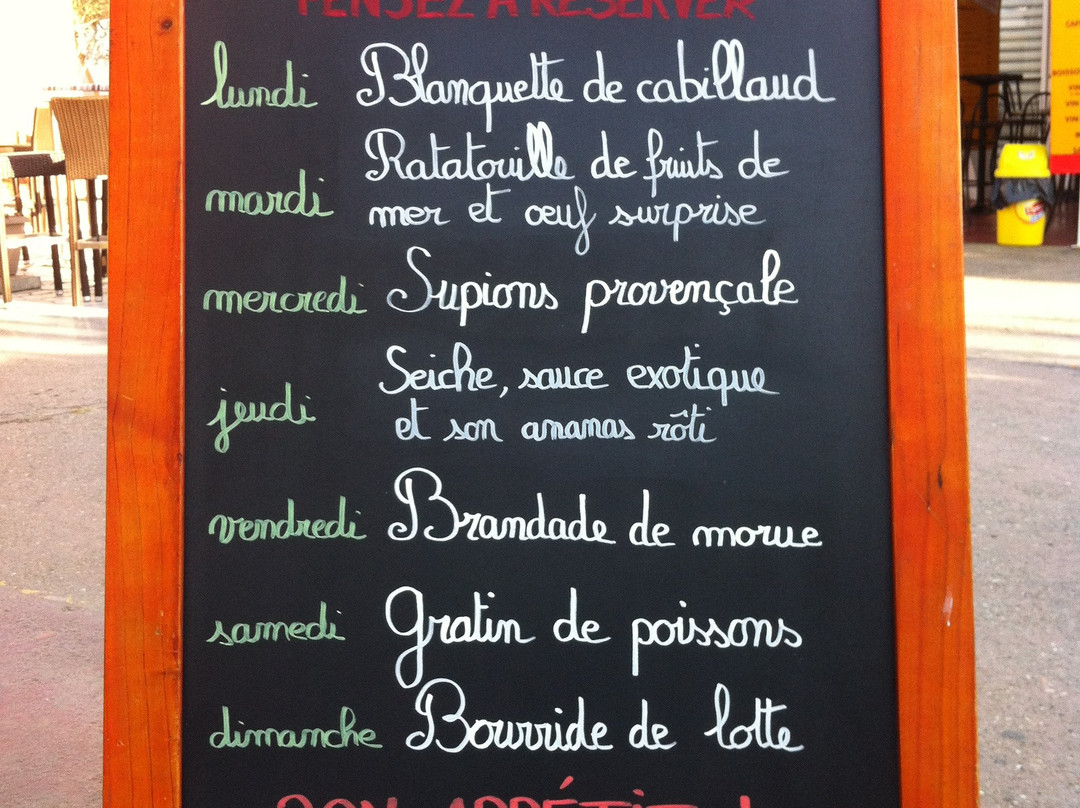 PENSEZ A RESERVER
lundi Blanquette de cabillaud
mardi Ratatouille de fruits de
mer et œuf surprise
mercredi Supions provençale
jeudi Seiche, sauce exotique
et son ananas rôti
vendredi Brandade de morue
samedi Gratin de poissons
dimanche Bourride de lotte
BON APPÉTIT !